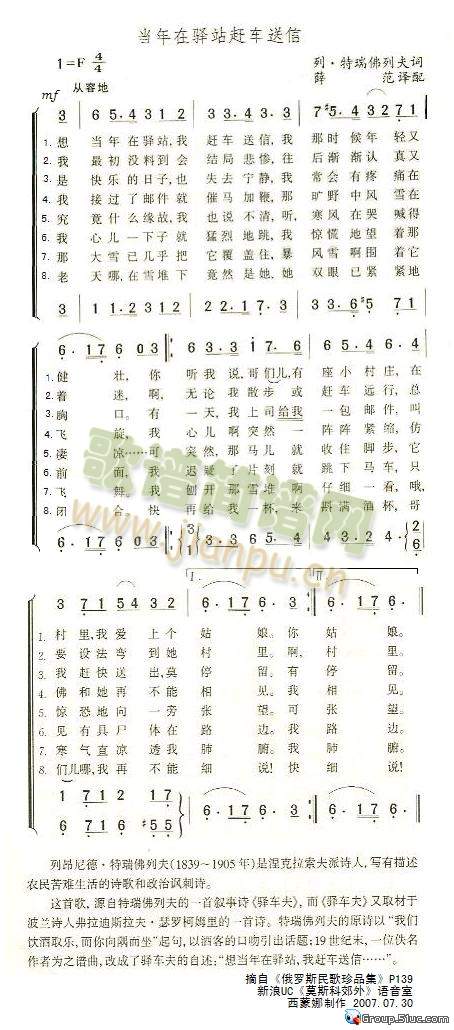 当年在驿站赶车送信
1=F 4/4
列·特瑞佛列夫词
薛 范译配
从容地
mf
3 6 5. 4 3 1 2 3 3. 3 4. 3 7 #5 4. 3 3 2 7 1
1. 想 当年在驿站, 我 赶车送信, 我 那时候年轻又
2. 我 最初没料到会 结局悲惨, 往 后渐渐认真又
3. 是 快乐的日子, 也 失去宁静, 我 常会有疼痛在
4. 我 接过了邮件就 催马加鞭, 那 旷野中风雪在
5. 究 竟什么缘故, 我 也说不清, 听, 寒风在哭喊得
6. 我 心儿一下子就 猛烈地跳, 我 惊慌地望着那
7. 那 大雪已几乎把 它覆盖住, 暴 风雪啊围着它
8. 老 天哪, 在雪堆下 竟然是她, 她 双眼已紧紧地
3 1 1. 2 3 1 2 2 2. 1 7. 3 3 3. 3 #5 7 1
6. 1 7 6 0 3 6 3. 3 i. 7 6. 6 6 5. 4 6. 4
1. 健 壮, 你 听我说, 哥们儿, 有 座小村庄, 在
2. 着 迷, 啊, 无论我散步或 赶车远行, 总
3. 胸 口。有 一天, 我上司给我 一包邮件, 叫
4. 飞 旋, 我 心儿啊突然一 阵阵紧缩, 仿
5. 凄 凉……可 突然, 那马儿就 收住脚步, 它
6. 前 面, 我 迟疑了片刻就 跳下马车, 只
7. 飞 舞。我 刨开那雪堆啊 仔细一看, 哦,
8. 闭 合, 快 再给我一杯, 来 斟满酒杯, 哥
6. 1 7 6 0 3 3. 3 6 5 4 5 4. 3 4. 2
3 7 1 5 4 3 2 6. 1 7 6. 3 6. 1 7 6.
1. 村里, 我爱上个 姑 娘。你 姑 娘。
2. 要设法弯到她 村 里。啊, 村 里。
3. 我赶快送出, 莫 停 留。有 停 留。
4. 佛和她再不能 相 见。我 相 见。
5. 惊恐地向一旁 张 望。可 张 望。
6. 见有具尸体在 路 边。我 路 边。
7. 寒气直凉透我 肺 腑。我 肺 腑。
8. 们儿哪, 我再不能 细 说! 快 细 说!
1 7 1 7 1 7 2 6. 1 7 6. 3 6. 1 7 6.
6 7 1 5 6 #5
列昂尼德·特瑞佛列夫(1839～1905年)是涅克拉索夫派诗人,写有描述
农民苦难生活的诗歌和政治讽刺诗。
这首歌,源自特瑞佛列夫的一首叙事诗《驿车夫》,而《驿车夫》又取材于
波兰诗人弗拉迪斯拉夫·瑟罗柯姆里的一首诗。特瑞佛列夫的原诗以“我们
饮酒取乐,而你向隅而坐”起句,以酒客的口吻引出话题;19世纪末,一位佚名
作者为之谱曲,改成了驿车夫的自述:“想当年在驿站,我赶车送信……”
摘自《俄罗斯民歌珍品集》P139
新浪UC《莫斯科郊外》语音室
西蒙娜制作 2007.07.30
歌谱简谱网
www.jianpu.cn
Group.51uc.com